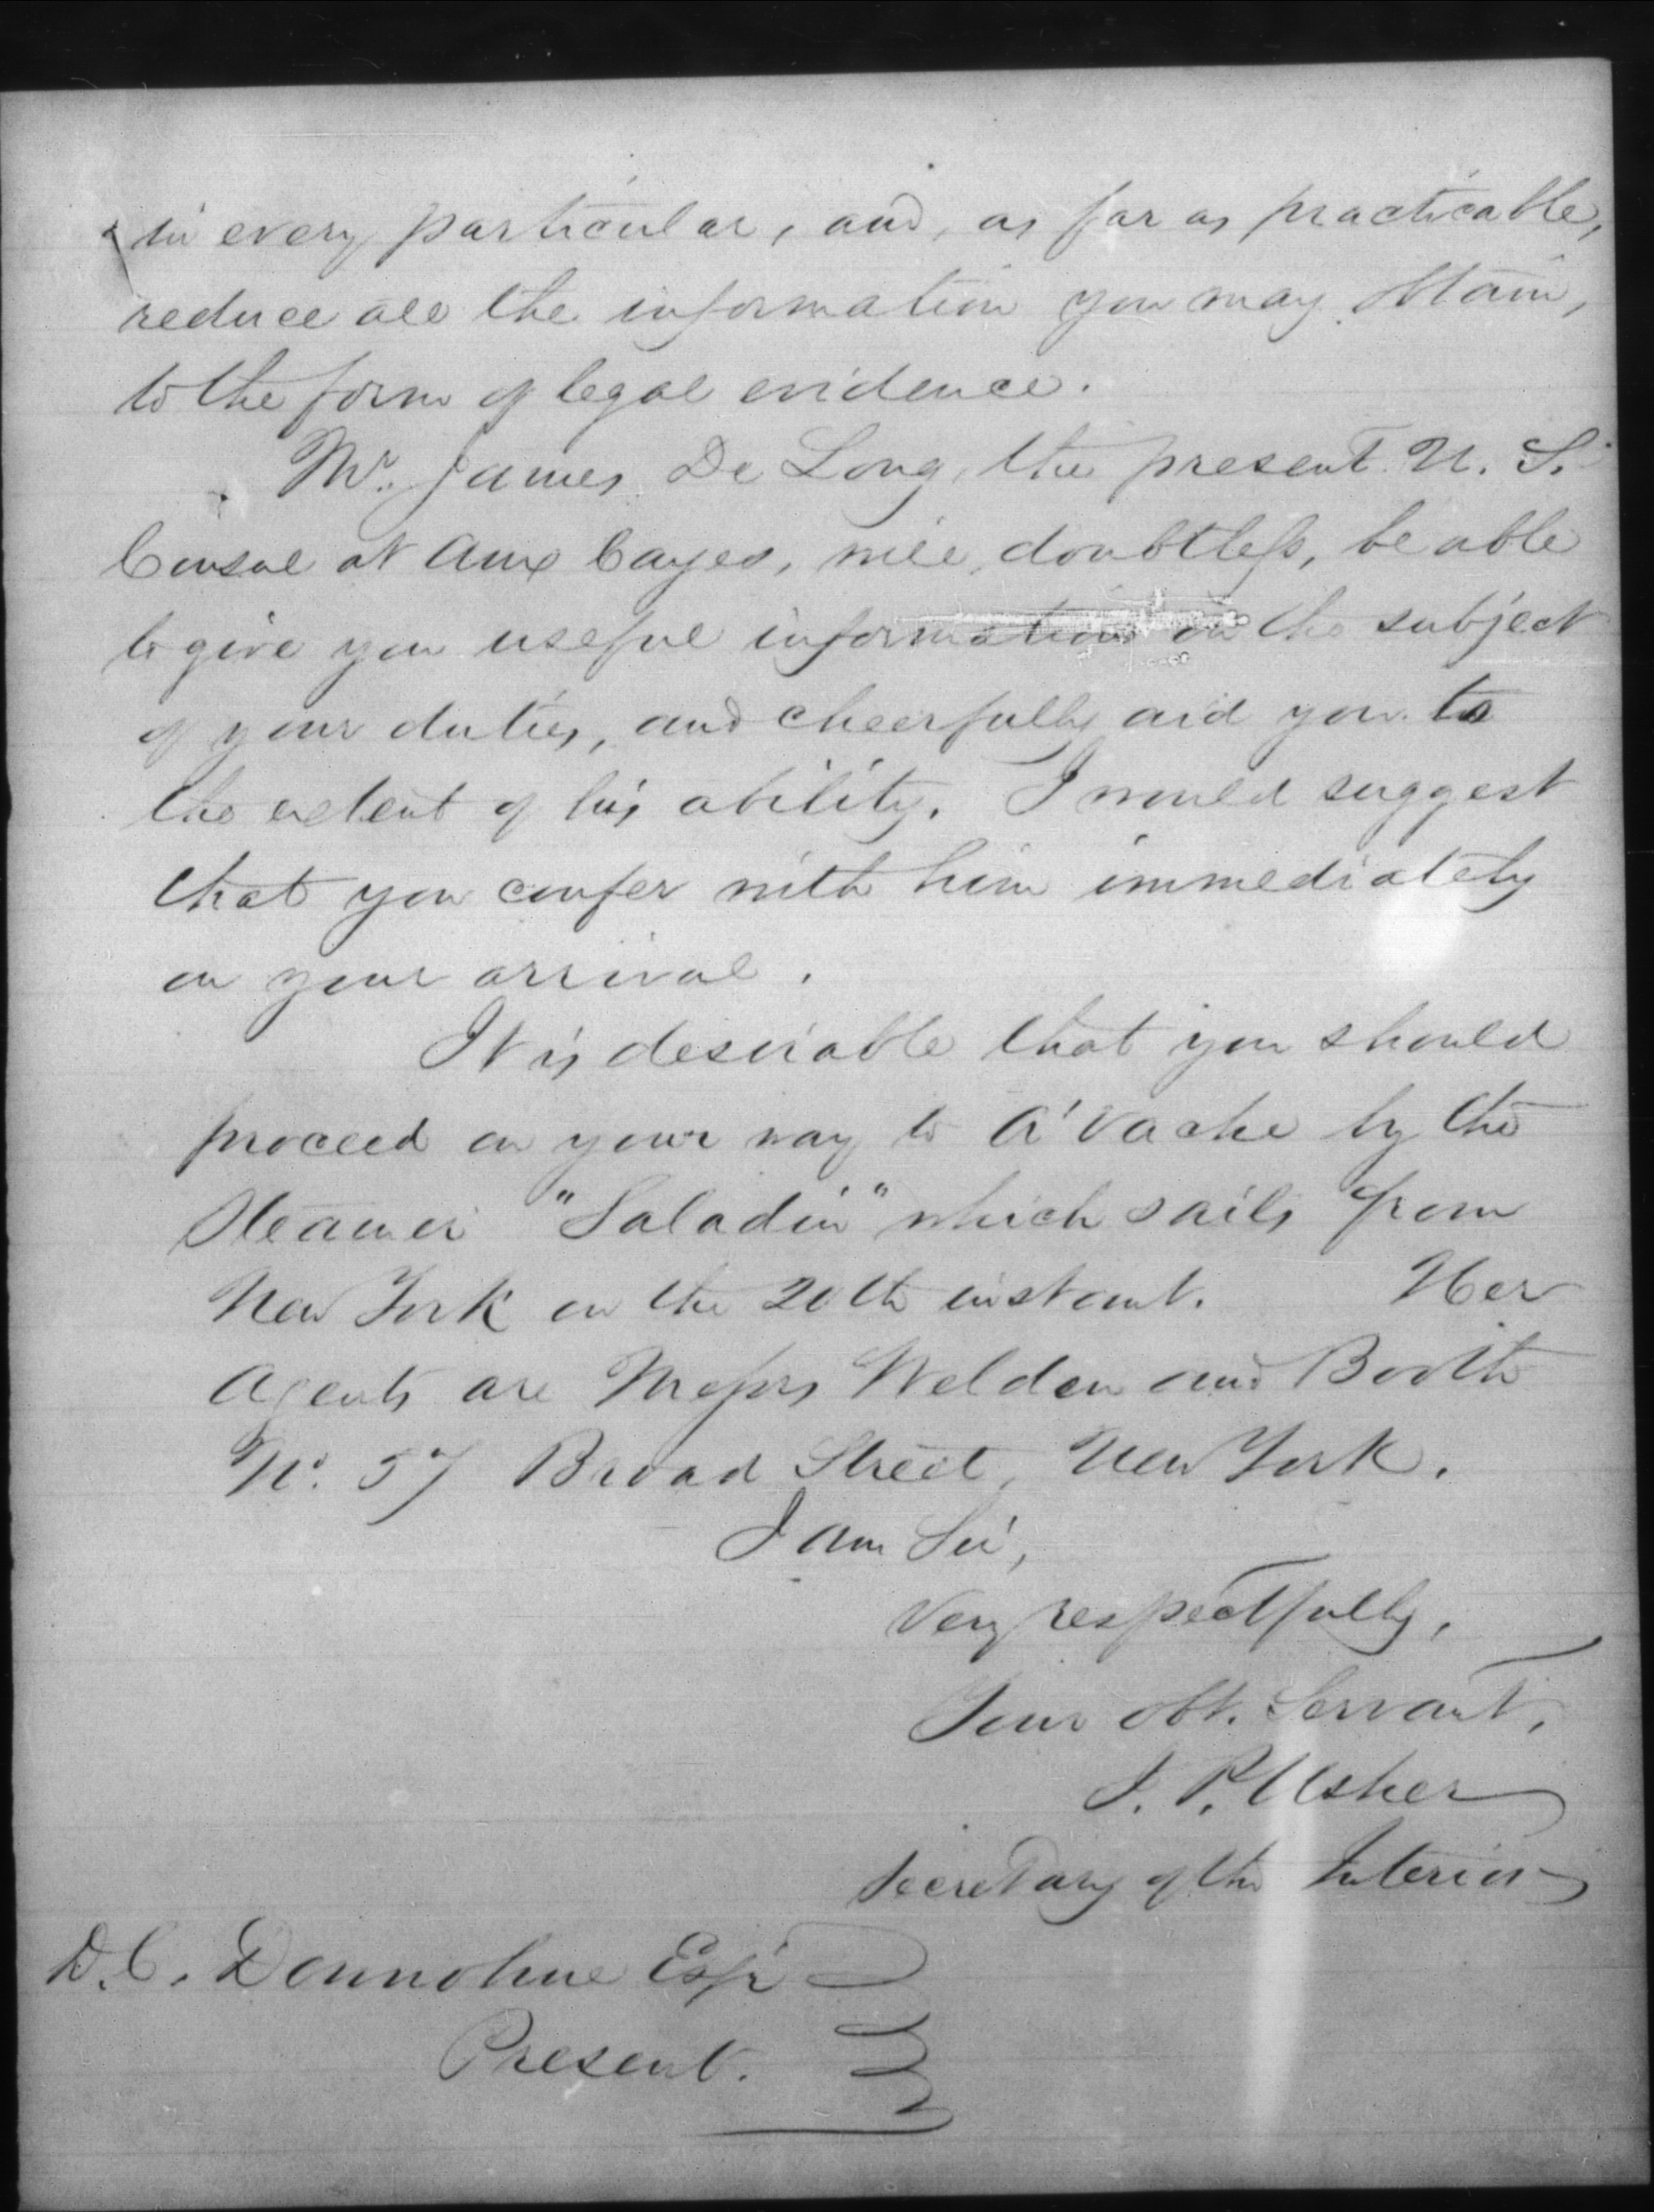 in every particular, and, as far as practicable,
reduce all the information you may obtain,
to the form of legal evidence.
Mr. James De Long, the present U. S.
Consul at Aux Cayes, will, doubtless, be able
to give you useful information on the subject
of your duties, and cheerfully aid you to
the extent of his ability. I would suggest
that you confer with him immediately
on your arrival.
It is desirable that you should
proceed on your way to A'Vache by the
Steamer "Saladin" which sails from
New York on the 20th instant. Her
Agents are Messrs Weldon and Booth
No. 57 Broad Street, New York.
I am Sir,
Very respectfully,
Your obt. Servant,
J. P. Usher
Secretary of the Interior
D. C. Donnohue Esqr
Present.